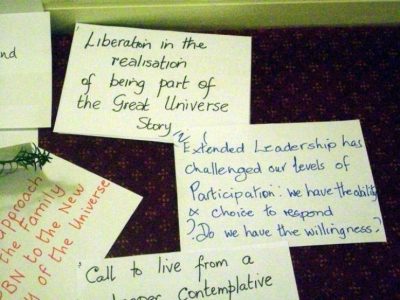 nd
' Liberation in the
realisation
of being part of
the Great Universe
Story
Extended Leadership has
challenged our levels of
Participation: we have the ability
& choice to respond
? Do we have the willingness?
approach
the Family
PBN to the New
of the Universe
' Call to live from a
deeper Contemplative